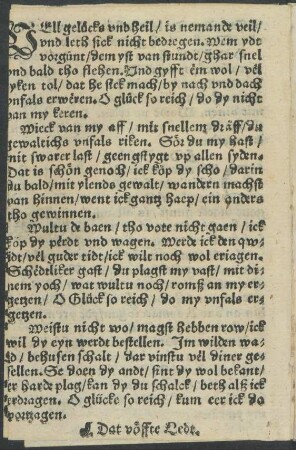 VEll gelücks vnd heil / is nemande veil /
vnd leth sick nicht bedregen. Wem ydt
vörgünt / dem yst van stundt / ghar snel
vnd bald tho stehen. Vnd gyfft em wol / vel
yken tol / dat he sick mach / by nach vnd dach
vnfals erweren. O glück so reich / do dy nicht
van my keren.
Wieck van my aff / mit snellem draff / du
gewaltichs vnfals riken. Söt du my hast /
mit swarer last / geengstygt vp allen syden.
Dat is schön genoch / ick köp dy scho / darin
du bald / mit ylends gewalt / wandern machst
van hinnen / went ick gantz haep / ein anders
tho gewinnen.
Wultu de baen / tho vote nicht gaen / ick
köp dy perdt vnd wagen. Werde ick den
idt / vel guder tidt / ick wilt noch wol eriagen.
Schedtliker gast / du plagst my vast / mit di-
nem yoch / wat wultu noch / romst an my er-
getzen / O Glöck so reich / do my vnfals er-
getzen.
Weistu nicht wo / magst hebben row / ick
wil dy eyn werdt bestellen. Im wilden wa-
ld / behusen schalt / dar vinstu vel diner ge-
sellen. Se doen dy andt / sint dy wol bekant /
er harde plag / kan dy du schalck / beth alß ick
erdragen. O glücke so reich / kum eer ick do
vortzagen.
¶ Dat vöffte Ledt.